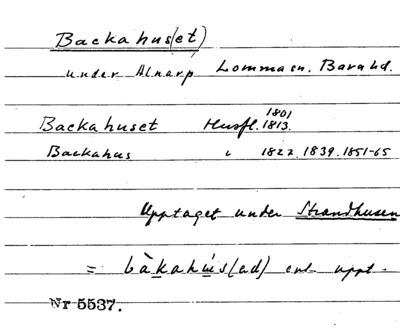 Backahus(et)
under Alnarp Lomma sn. Bara hd.
1801
Backahuset Husfl. 1813.
Backahus " 1822 1839. 1851-65
Upptaget under Strandhusen
= bàkahús(ad) enl. uppt.
Nr 5537.